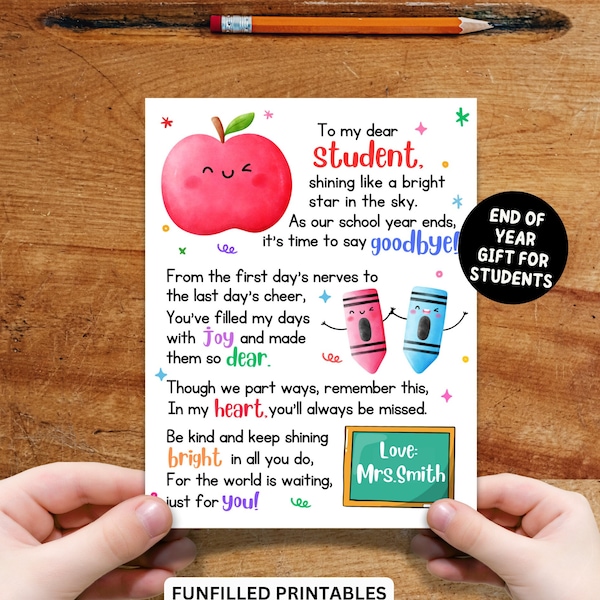 To my dear
student,
shining like a bright
star in the sky.
As our school year ends,
it's time to say goodbye!
END OF
YEAR
GIFT FOR
STUDENTS
From the first day's nerves to
the last day's cheer,
You've filled my days
with joy and made
them so dear.
Though we part ways, remember this,
In my heart, you'll always be missed.
Be kind and keep shining
bright in all you do,
For the world is waiting,
just for you!
Love:
Mrs.Smith
FUNFILLED PRINTABLES